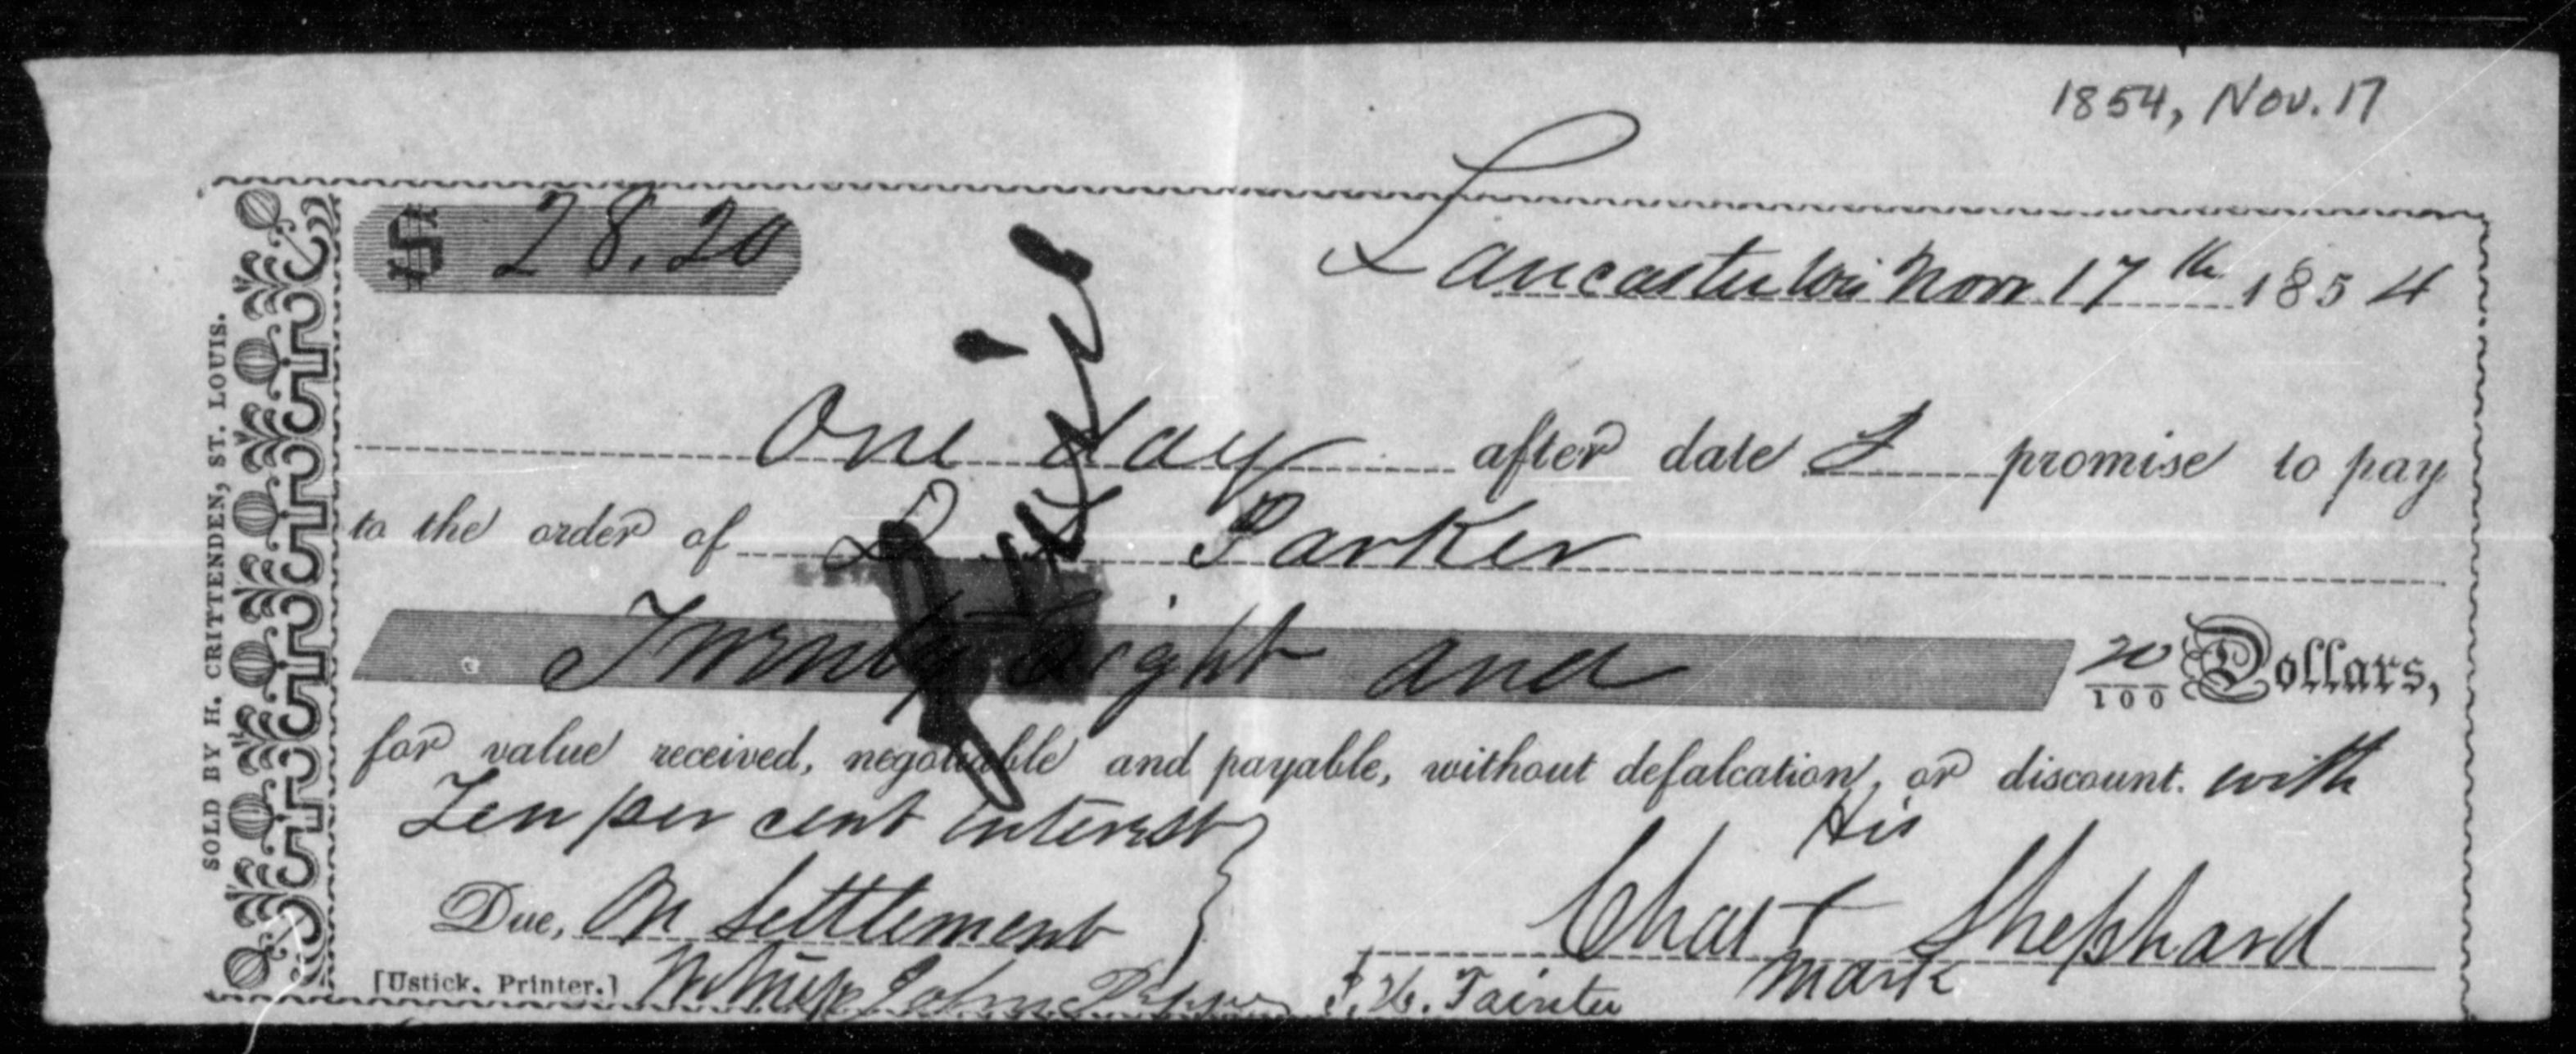 1854, Nov. 17
$ 28.20
Lancaster Wis Nov 17th 1854
One day after date I promise to pay
to the order of D Parker
Twenty Eight and 20/100 Dollars,
for value received, negotiable and payable, without defalcation, or discount. with
Ten per cent interest
His
Due, On Settlement
Chas + Shephard
mark
[Ustick, Printer.] Witness John J. H. Tainter
SOLD BY H. CRITTENDEN, ST. LOUIS.